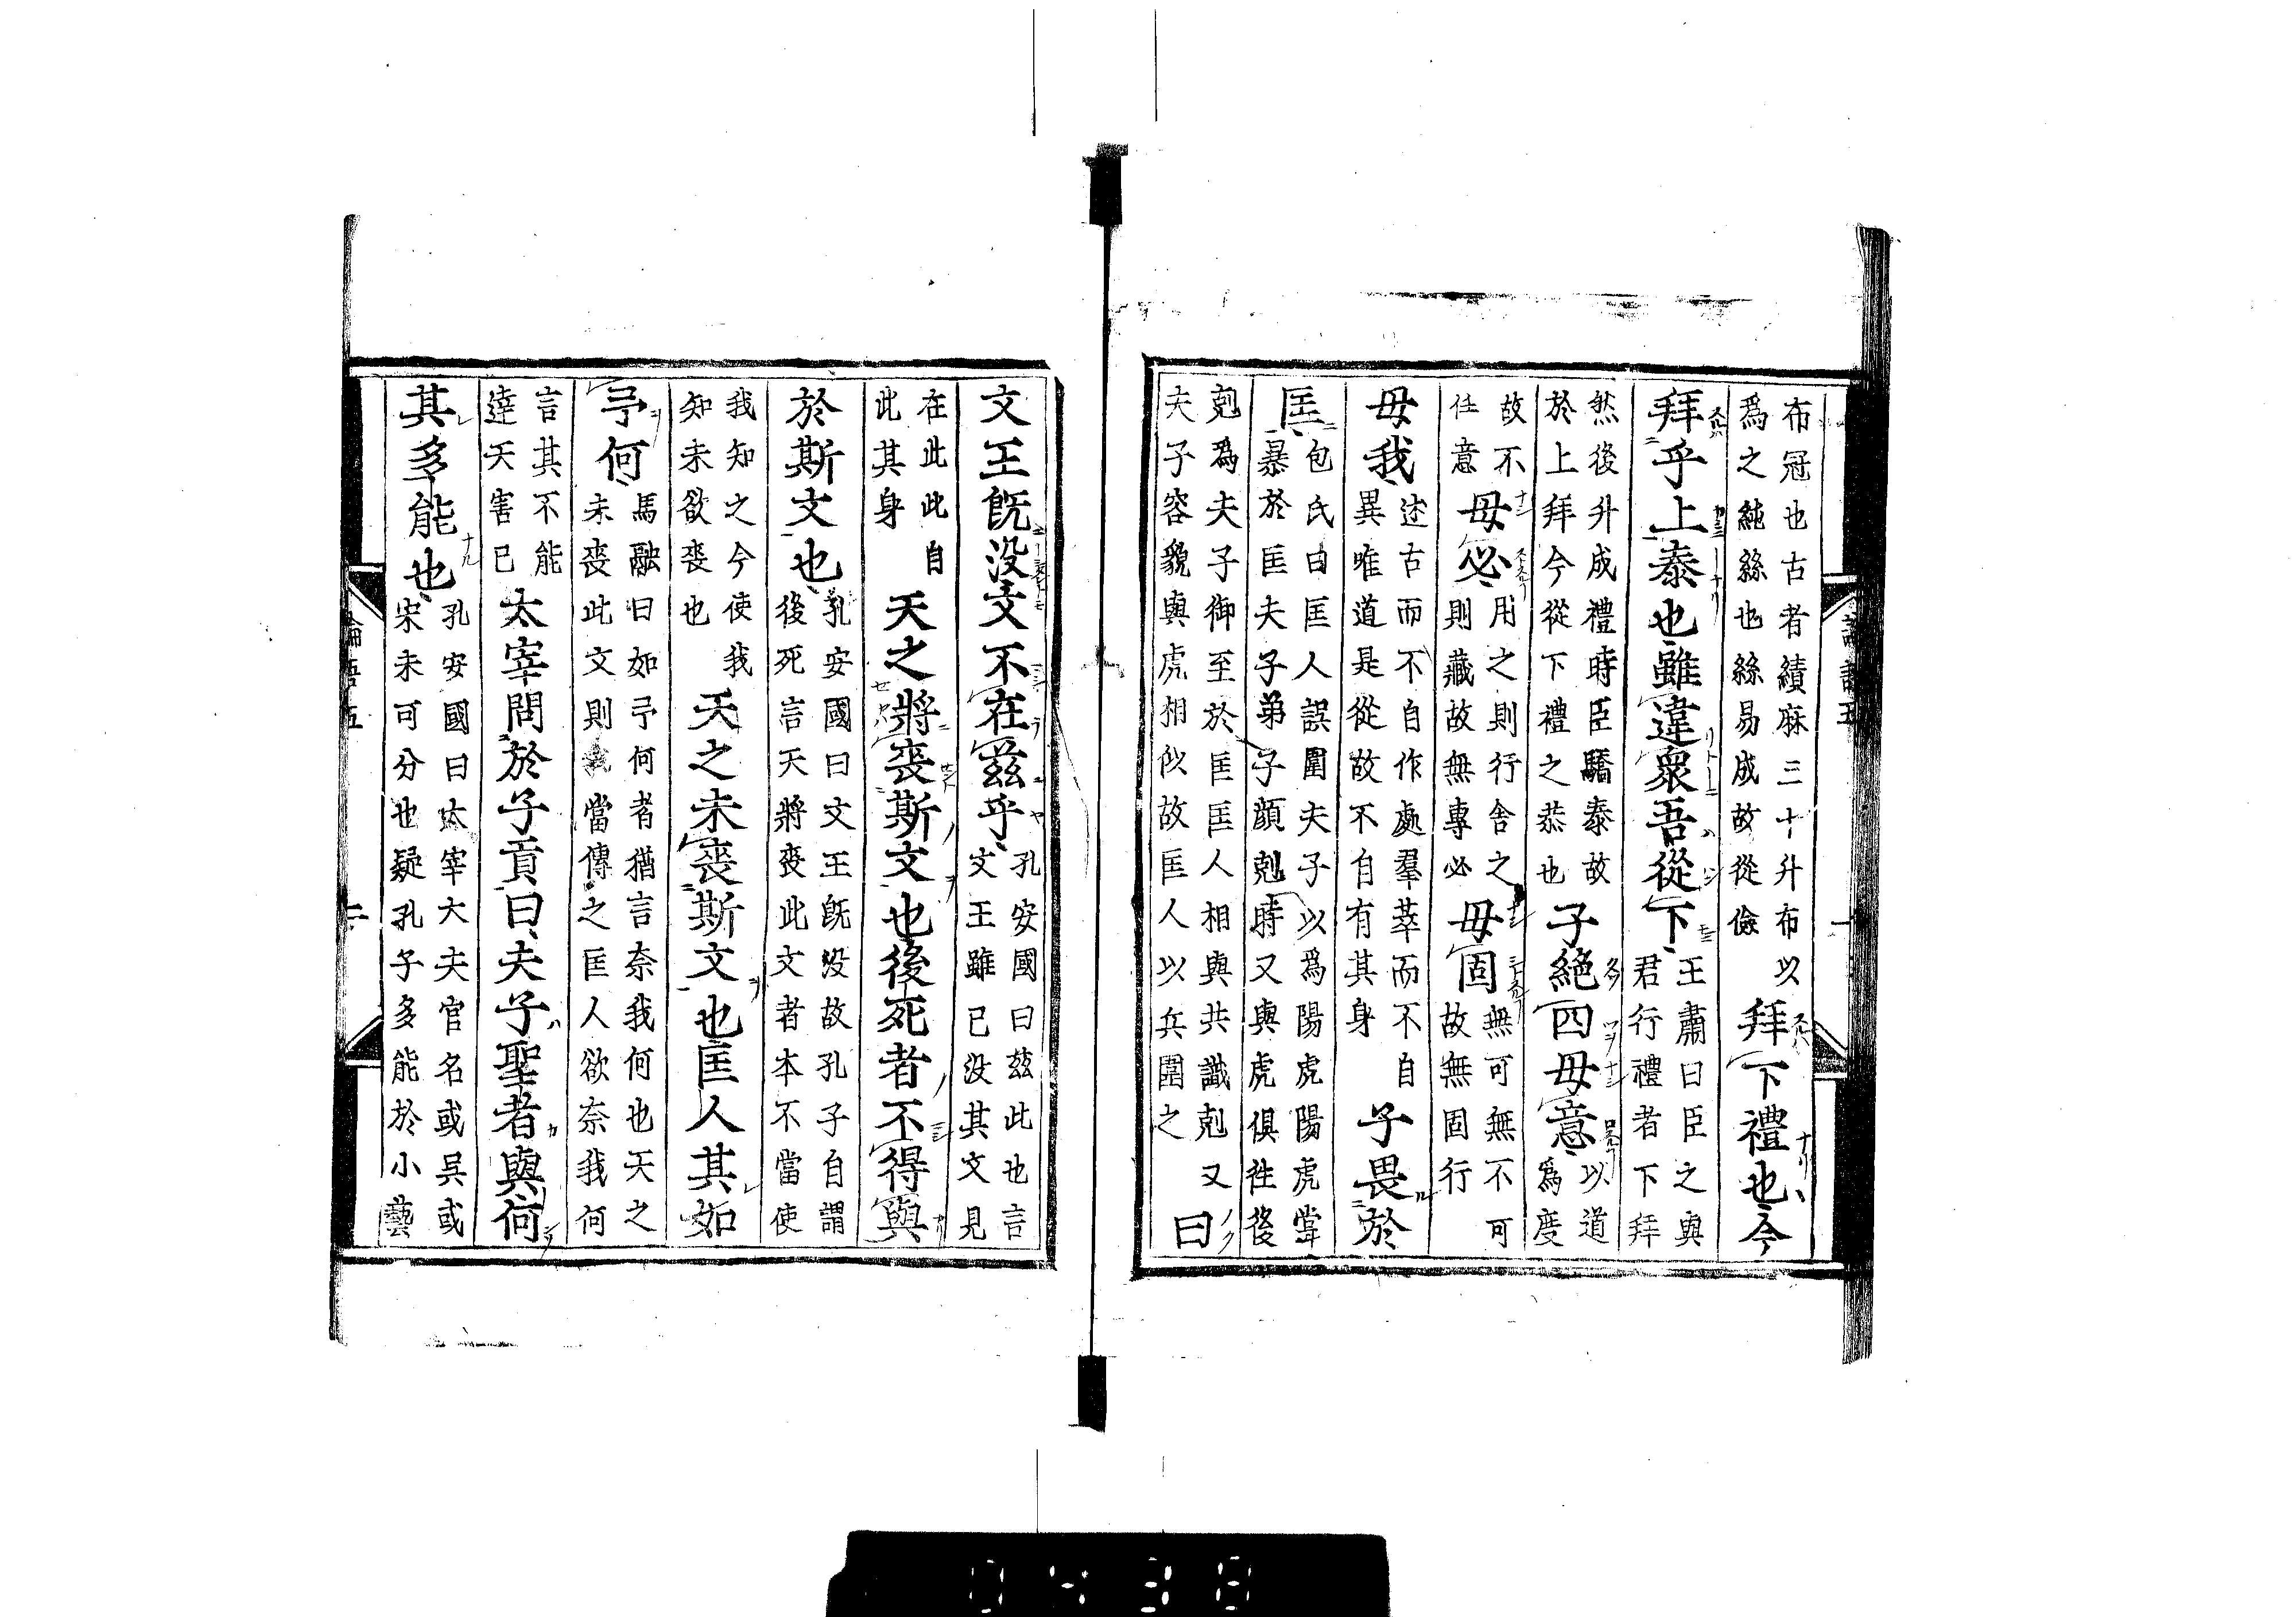 布冠也古者績麻三十升布以
爲之純絲也絲易成故從儉
拜下禮也今
拜乎上泰也雖違衆吾從下
王肅曰臣之與
君行禮者下拜
然後升成禮時臣驕泰故
於上拜今從下禮之恭也
子絕四毋意
以道
爲度
故不
任意
毋必
用之則行舍之
則藏故無專必
毋固
無可無不可
故無固行
毋我
述古而不自作處羣萃而不自
異唯道是從故不自有其身
子畏於
匡
包氏曰匡人誤圍夫子以爲陽虎陽虎甞
暴於匡夫子弟子顔剋時又與虎俱徃後
剋爲夫子御至於匡匡人相與共識剋又
夫子容貌與虎相似故匡人以兵圍之
曰
文王旣没文不在茲乎
孔安國曰茲此也言
文王雖已没其文見
在此此自
此其身
天之將喪斯文也後死者不得與
於斯文也
孔安國曰文王旣没故孔子自謂
後死言天將喪此文者本不當使
我知之今使我
知未欲喪也
天之未喪斯文也匡人其如
予何
馬融曰如予何者猶言奈我何也天之
未喪此文則我當傳之匡人欲奈我何
言其不能
違天害己
太宰問於子貢曰夫子聖者與何
其多能也
孔安國曰太宰大夫官名或吴或
宋未可分也疑孔子多能於小藝
論語五
二
0438